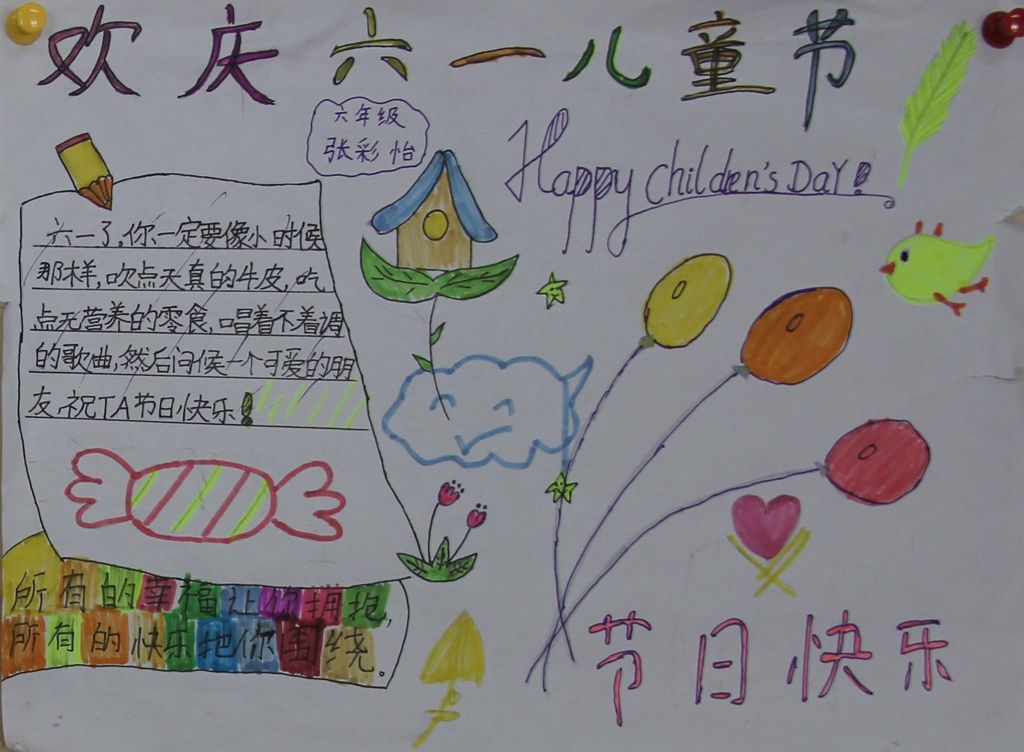 欢庆六一儿童节
六年级
张彩怡
Happy Children's DAY!
六一了,你一定要像小时候
那样,吹点天真的牛皮,吃
点无营养的零食,唱着不着调
的歌曲,然后问候一个可爱的朋
友,祝TA节日快乐!
所有的幸福让你拥抱,
所有的快乐把你围绕。
节日快乐